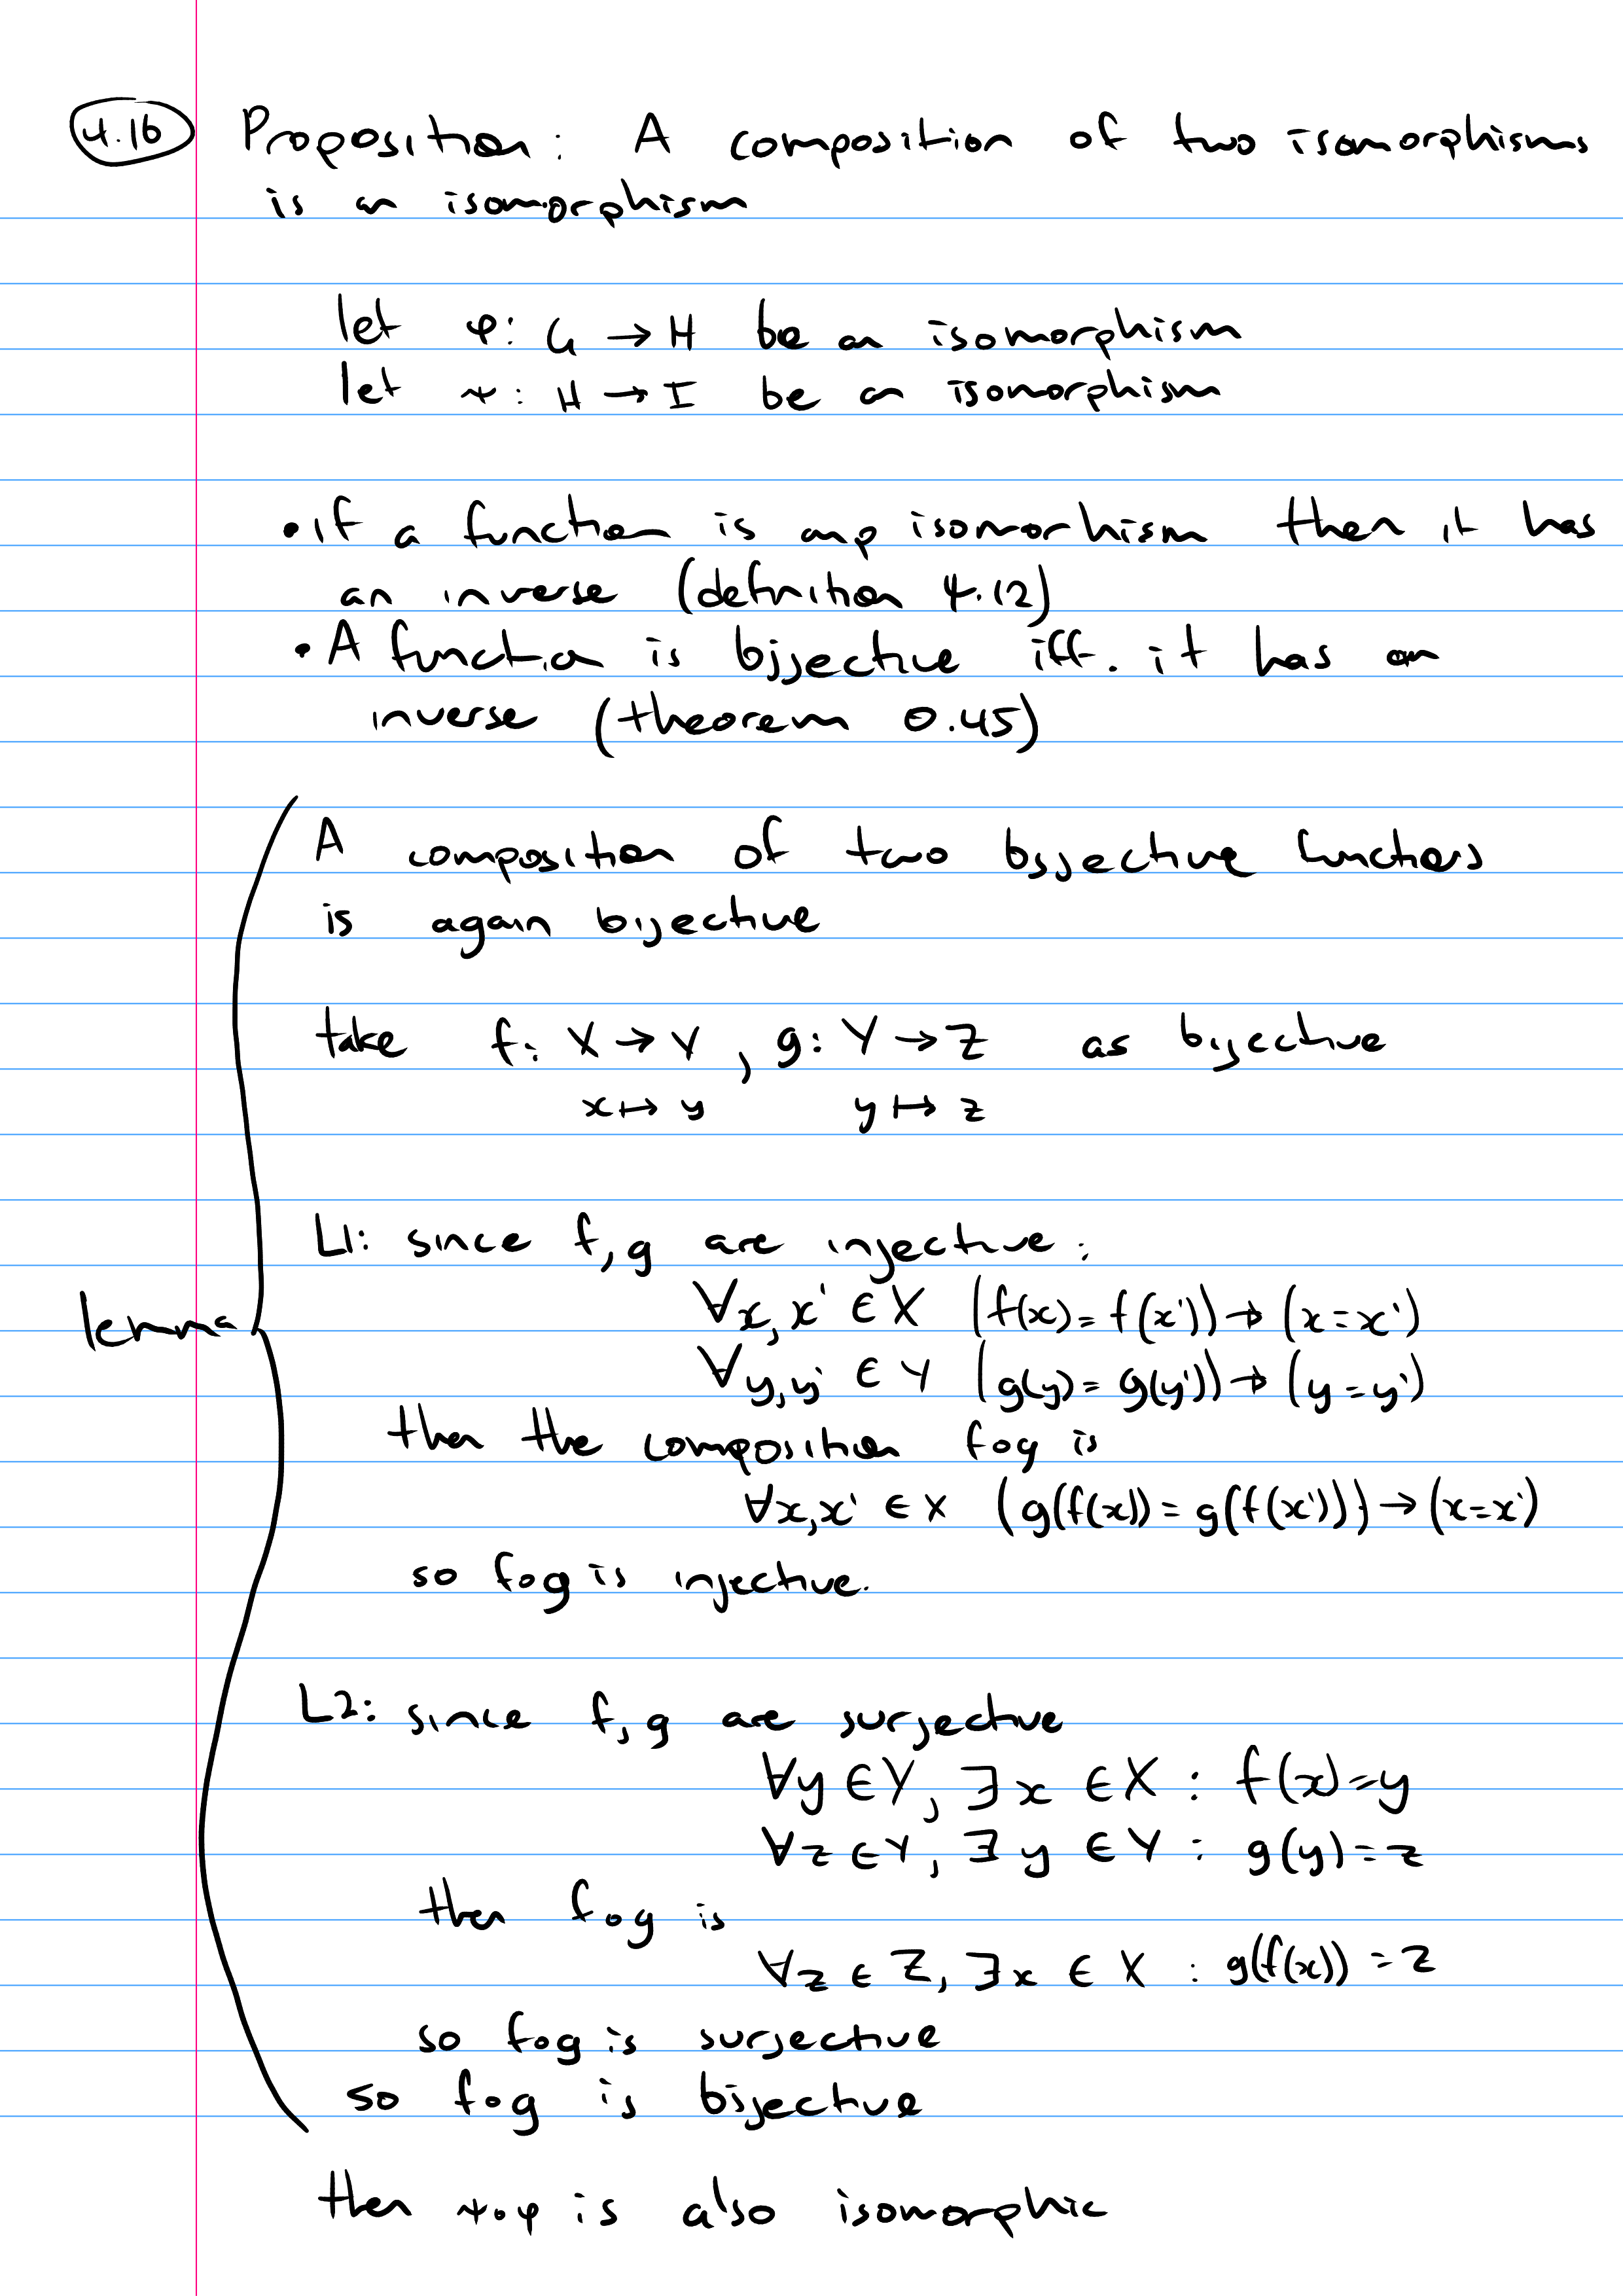 4.16 Proposition: A composition of two isomorphisms
is an isomorphism
let φ: G → H be an isomorphism
let ψ: H → I be an isomorphism
• if a function is any isomorhism then it has
an inverse (definition 4.12)
• A function is bijective iff. it has an
inverse (theorem 0.45)
A composition of two bijective functions
is again bijective
take f: X → Y, g: Y → Z as bijective
x ↦ y y ↦ z
L1: since f, g are injective:
∀x, x' ∈ X (f(x) = f(x')) → (x = x')
lemma
∀y, y' ∈ Y (g(y) = g(y')) → (y = y')
then the composition fog is
∀x, x' ∈ X (g(f(x)) = g(f(x'))) → (x = x')
so fog is injective.
L2: since f, g are surjective
∀y ∈ Y, ∃x ∈ X : f(x) = y
∀z ∈ Y, ∃y ∈ Y : g(y) = z
then fog is
∀z ∈ Z, ∃x ∈ X : g(f(x)) = z
so fog is surjective
so fog is bijective
then ψ∘φ is also isomorphic